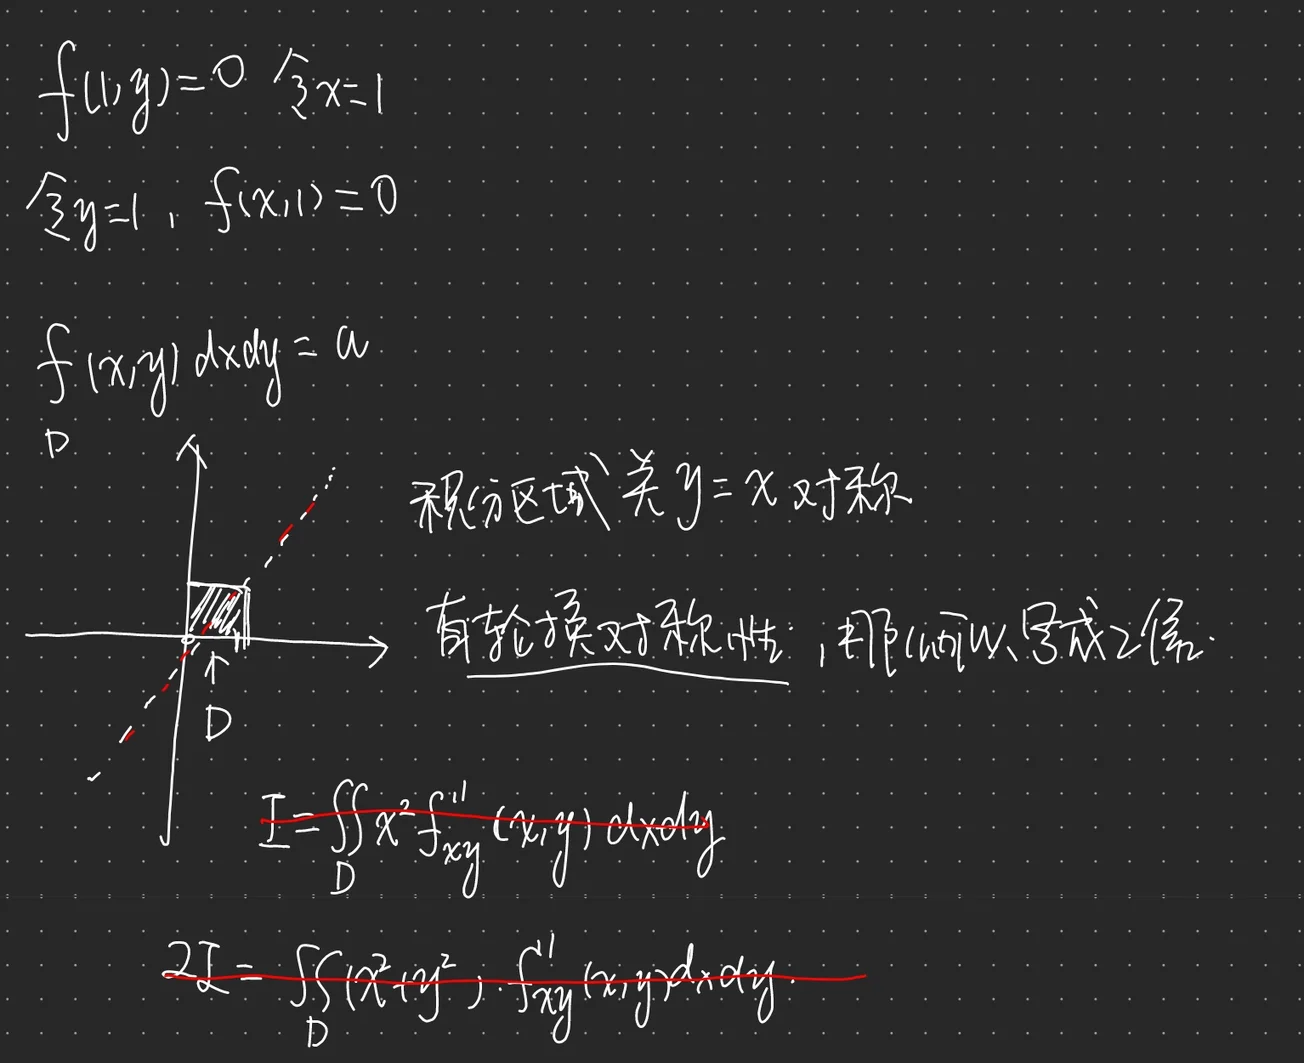 f(1,y)=0 令x=1
令y=1, f(x,1)=0
f(x,y)dxdy=a
D
积分区域关y=x对称
有轮换对称性,那么可以写成2倍.
D
I=∬x²f''xy(x,y)dxdy
D
2I=∬(x²+y²)·f''xy(x,y)dxdy.
D